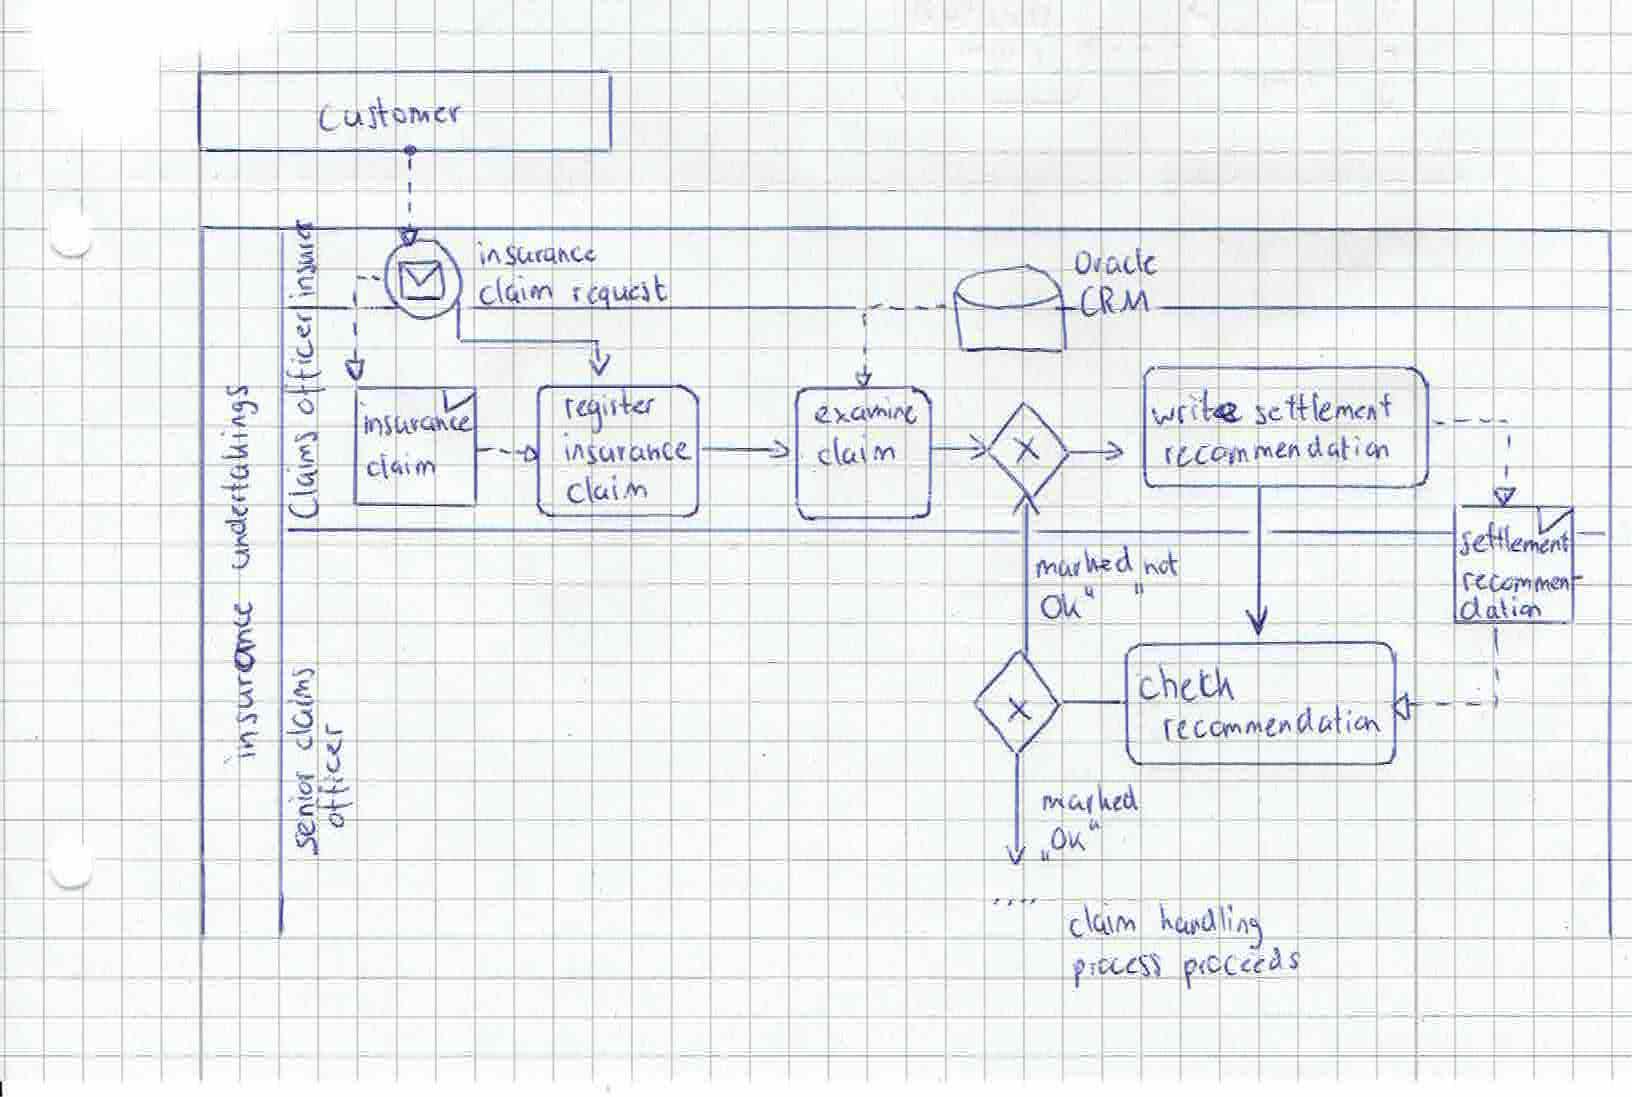 Customer
insurance
claim request
Oracle
CRM
insurance undertakings
Claims officer/insurer
insurance
claim
register
insurance
claim
examine
claim
X
write settlement
recommendation
settlement
recommen-
dation
marked not
Ok" "
senior claims
officer
X
check
recommendation
marked
„Ok"
....
claim handling
process proceeds